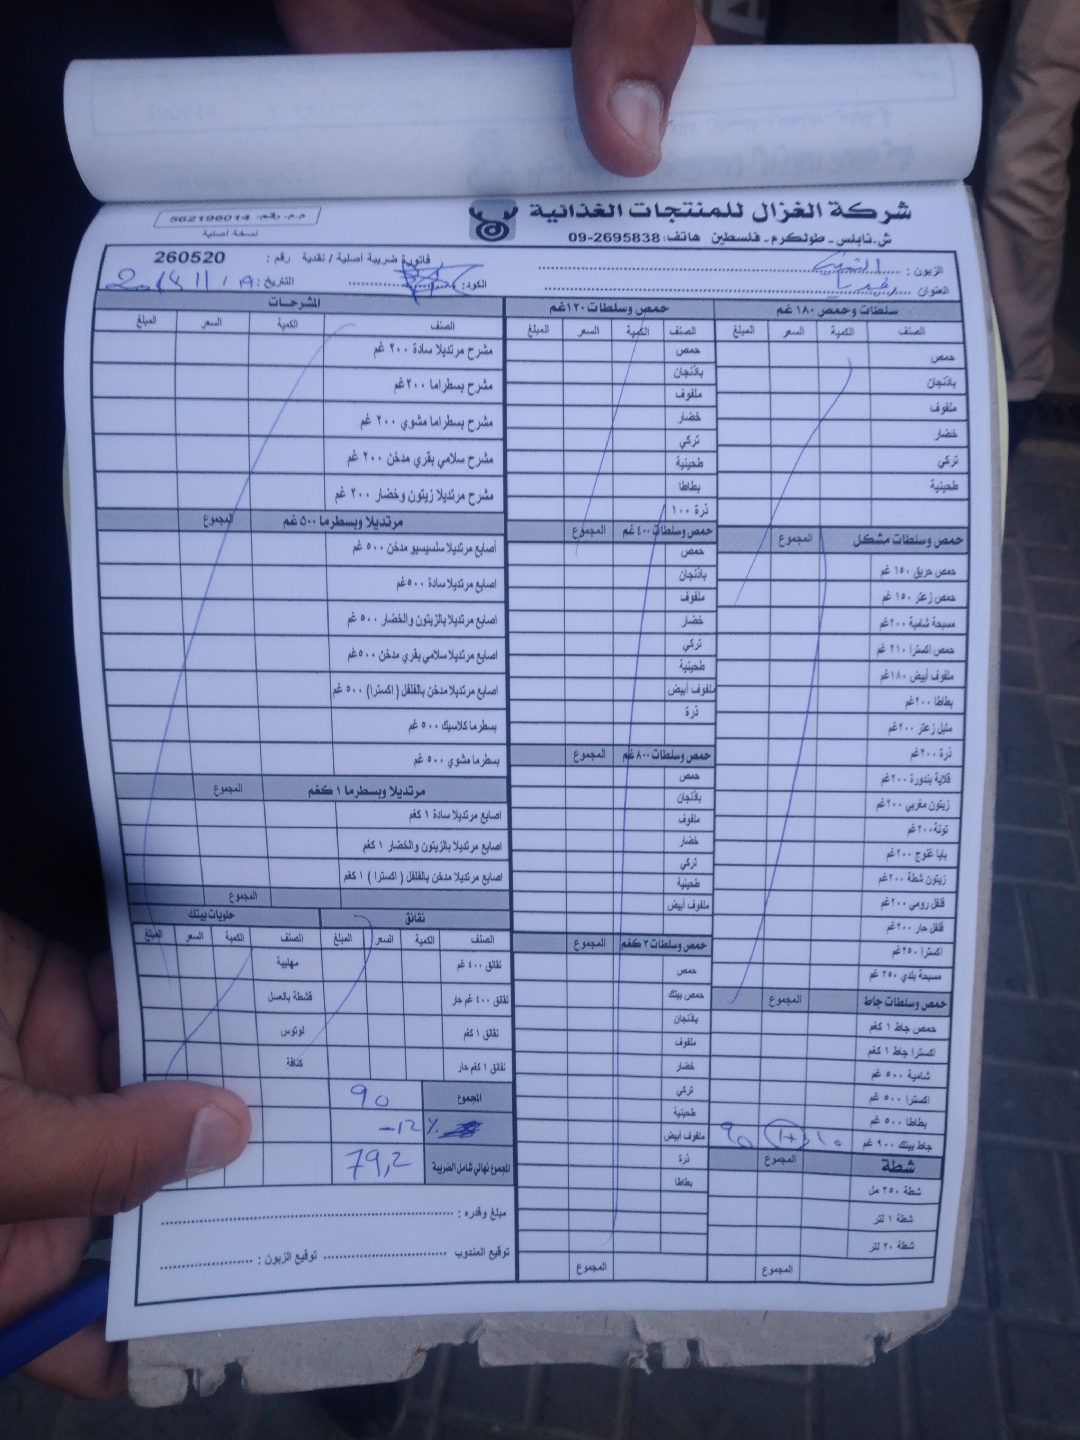 شركة الغزال للمنتجات الغذائية
م.م. رقم: 562196014
نسخة أصلية
ش.نابلس - طولكرم - فلسطين هاتف: 09-2695838
فاتورة ضريبة أصلية / نقدية رقم : 260520
الزبون :
العنوان :
الكود:
التاريخ: ١٩ / ١١ /
سلطات وحمص ١٨٠ غم
الصنف الكمية السعر المبلغ
حمص
باذنجان
ملفوف
خضار
تركي
طحينية
حمص وسلطات مشكل المجموع
حمص حريق ١٥٠ غم
حمص زعتر ١٥٠ غم
مسبحة شامية ٢٠٠ غم
حمص اكسترا ٢١٠ غم
ملفوف أبيض ١٨٠ غم
بطاطا ٢٠٠ غم
متبل زعتر ٢٠٠ غم
ذرة ٢٠٠ غم
قلاية بندورة ٢٠٠ غم
زيتون مغربي ٢٠٠ غم
تونة ٢٠٠ غم
بابا غنوج ٢٠٠ غم
زيتون شطة ٢٠٠ غم
فلفل رومي ٢٠٠ غم
فلفل حار ٢٠٠ غم
اكسترا ٢٥٠ غم
مسبحة بلدي ٢٥٠ غم
حمص وسلطات جاط المجموع
حمص جاط ١ كغم
اكسترا جاط ١ كغم
شامية ٥٠٠ غم
اكسترا ٥٠٠ غم
بطاطا ٥٠٠ غم
جاط بيتك ٩٠٠ غم ١٠ 90
شطة المجموع
شطة ٢٥٠ مل
شطة ١ لتر
شطة ٢٠ لتر
المجموع
حمص وسلطات ١٢٠ غم
الصنف الكمية السعر المبلغ
حمص
باذنجان
ملفوف
خضار
تركي
طحينية
بطاطا
ذرة ١٠٠
حمص وسلطات ٤٠٠ غم المجموع
حمص
باذنجان
ملفوف
خضار
تركي
طحينية
ملفوف أبيض
ذرة
حمص وسلطات ٨٠٠ غم المجموع
حمص
باذنجان
ملفوف
خضار
تركي
طحينية
ملفوف أبيض
حمص وسلطات ٣ كغم المجموع
حمص
حمص بيتك
باذنجان
ملفوف
خضار
تركي
طحينية
ملفوف أبيض
ذرة
بطاطا
المجموع
المشرحات
الصنف الكمية السعر المبلغ
مشرح مرتديلا سادة ٢٠٠ غم
مشرح بسطراما ٢٠٠ غم
مشرح بسطراما مشوي ٢٠٠ غم
مشرح سلامي بقري مدخن ٢٠٠ غم
مشرح مرتديلا زيتون وخضار ٢٠٠ غم
مرتديلا وبسطرما ٥٠٠ غم المجموع
أصابع مرتديلا سلسيسيو مدخن ٥٠٠ غم
اصابع مرتديلا سادة ٥٠٠ غم
اصابع مرتديلا بالزيتون والخضار ٥٠٠ غم
اصابع مرتديلا سلامي بقري مدخن ٥٠٠ غم
اصابع مرتديلا مدخن بالفلفل ( اكسترا ) ٥٠٠ غم
بسطرما كلاسيك ٥٠٠ غم
بسطرما مشوي ٥٠٠ غم
مرتديلا وبسطرما ١ كغم المجموع
اصابع مرتديلا سادة ١ كغم
اصابع مرتديلا بالزيتون والخضار ١ كغم
اصابع مرتديلا مدخن بالفلفل ( اكسترا ) ١ كغم
المجموع
نقانق حلويات بيتك
الصنف الكمية السعر المبلغ الصنف الكمية السعر المبلغ
نقانق ٤٠٠ غم مهلبية
نقانق ٤٠٠ غم حار قشطة بالعسل
نقانق ١ كغم لوتوس
نقانق ١ كغم حار كنافة
المجموع 90
-12 %
المجموع نهائي شامل الضريبة 79,2
مبلغ وقدره :
توقيع المندوب توقيع الزبون :